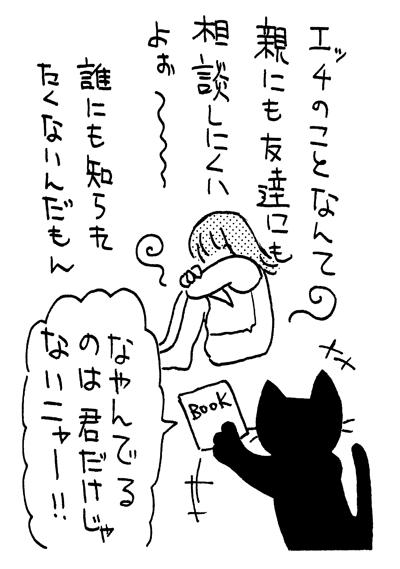 エッチのことなんて
親にも友達にも
相談しにくい
よぉ〜〜〜
誰にも知られ
たくないんだもん
BOOK
なやんでる
のは君だけじゃ
ないニャー!!